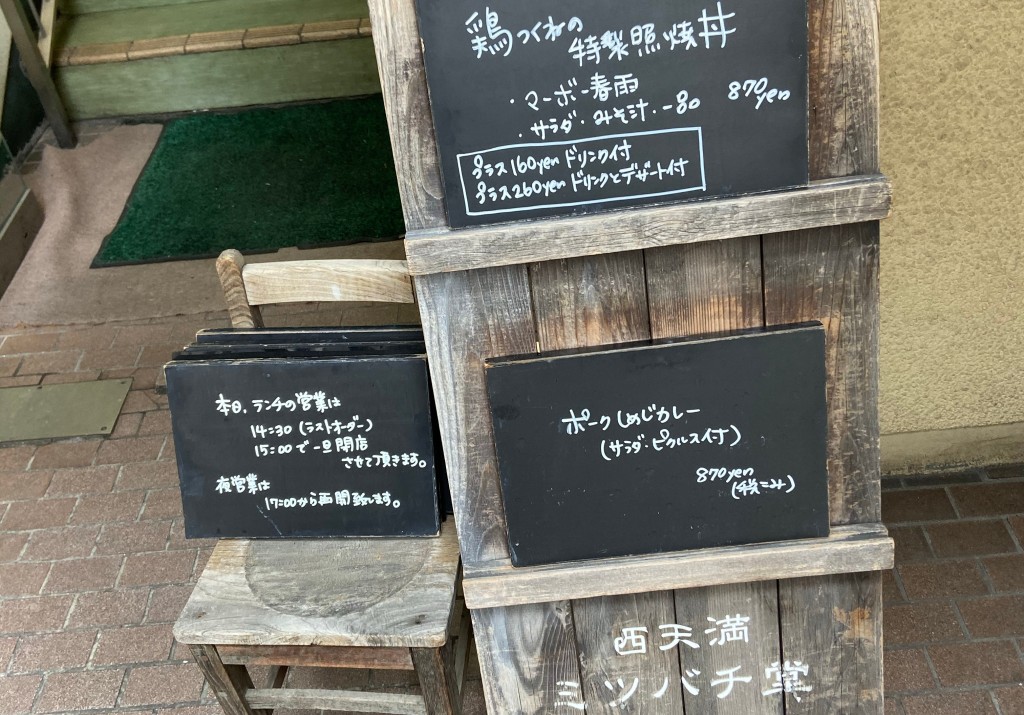 鶏つくねの
特製照焼丼
・マーボー春雨
・サラダ・みそ汁・
870yen
プラス160yen ドリンク付
プラス260yen ドリンクとデザート付
本日、ランチの営業は
14:30 (ラストオーダー)
15:00で一旦閉店
させて頂きます。
夜営業は
17:00から再開致します。
ポークしめじカレー
(サラダ・ピクルス付)
870yen
(税こみ)
西天満
ミツバチ堂